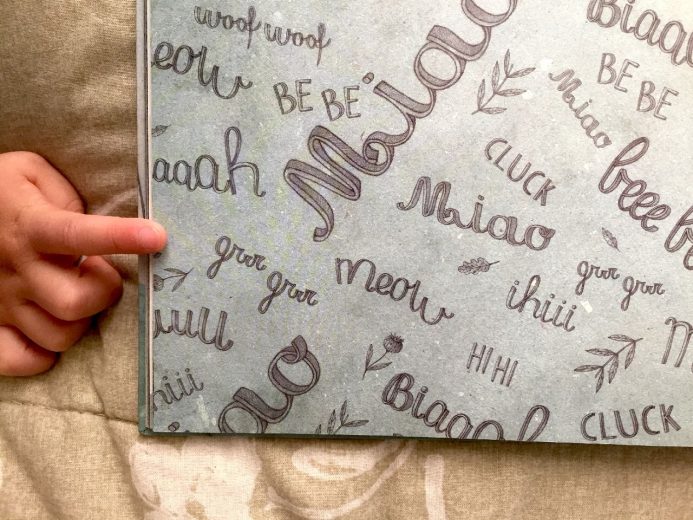 woof woof
Miao
eow
BE BE
BE BE
Miao
CLUCK
aaah
Miao
beee be
grrr grrr
meow
ihiii
grrr grrr
HI HI
hiii
Miao
CLUCK